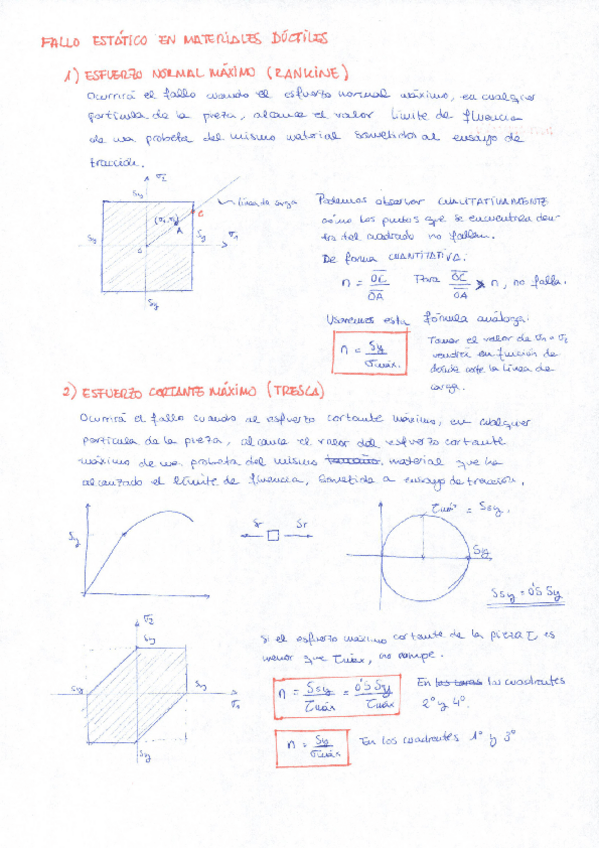 FALLO ESTÁTICO EN MATERIALES DÚCTILES
1) ESFUERZO NORMAL MÁXIMO (RANKINE)
Ocurrirá el fallo cuando el esfuerzo normal máximo, en cualquier
partícula de la pieza, alcance el valor límite de fluencia
de una probeta del mismo material sometidos al ensayo de
tracción.
σ2
Sy
línea de carga
(σ1, σ2)
C
A
Sy
Sy
σ1
O
Sy
Podemos observar CUALITATIVAMENTE
cómo los puntos que se encuentren den-
tro del cuadrado no fallan.
De forma CUANTITATIVA:
n = OC/OA Para OC/OA n, no falla.
Usaremos esta fórmula análoga:
n = Sy/σmáx.
Tomar el valor de σ1 o σ2
vendrá en función de
donde corte la línea de
carga.
2) ESFUERZO CORTANTE MÁXIMO (TRESCA)
Ocurrirá el fallo cuando el esfuerzo cortante máximo, en cualquier
partícula de la pieza, alcance el valor del esfuerzo cortante
máximo de una probeta del mismo material que ha
alcanzado el límite de fluencia, sometida a ensayo de tracción.
Sy
τmáx = Ssy.
Sy
Ssy = 0'5 Sy
σ2
Sy
Sy
Sy
σ1
Sy
Si el esfuerzo máximo cortante de la pieza τ es
menor que τmáx, no rompe.
n = Ssy/τmáx = 0'5 Sy/τmáx
En los cuadrantes
2º y 4º.
n = Sy/σmáx
En los cuadrantes 1º y 3º